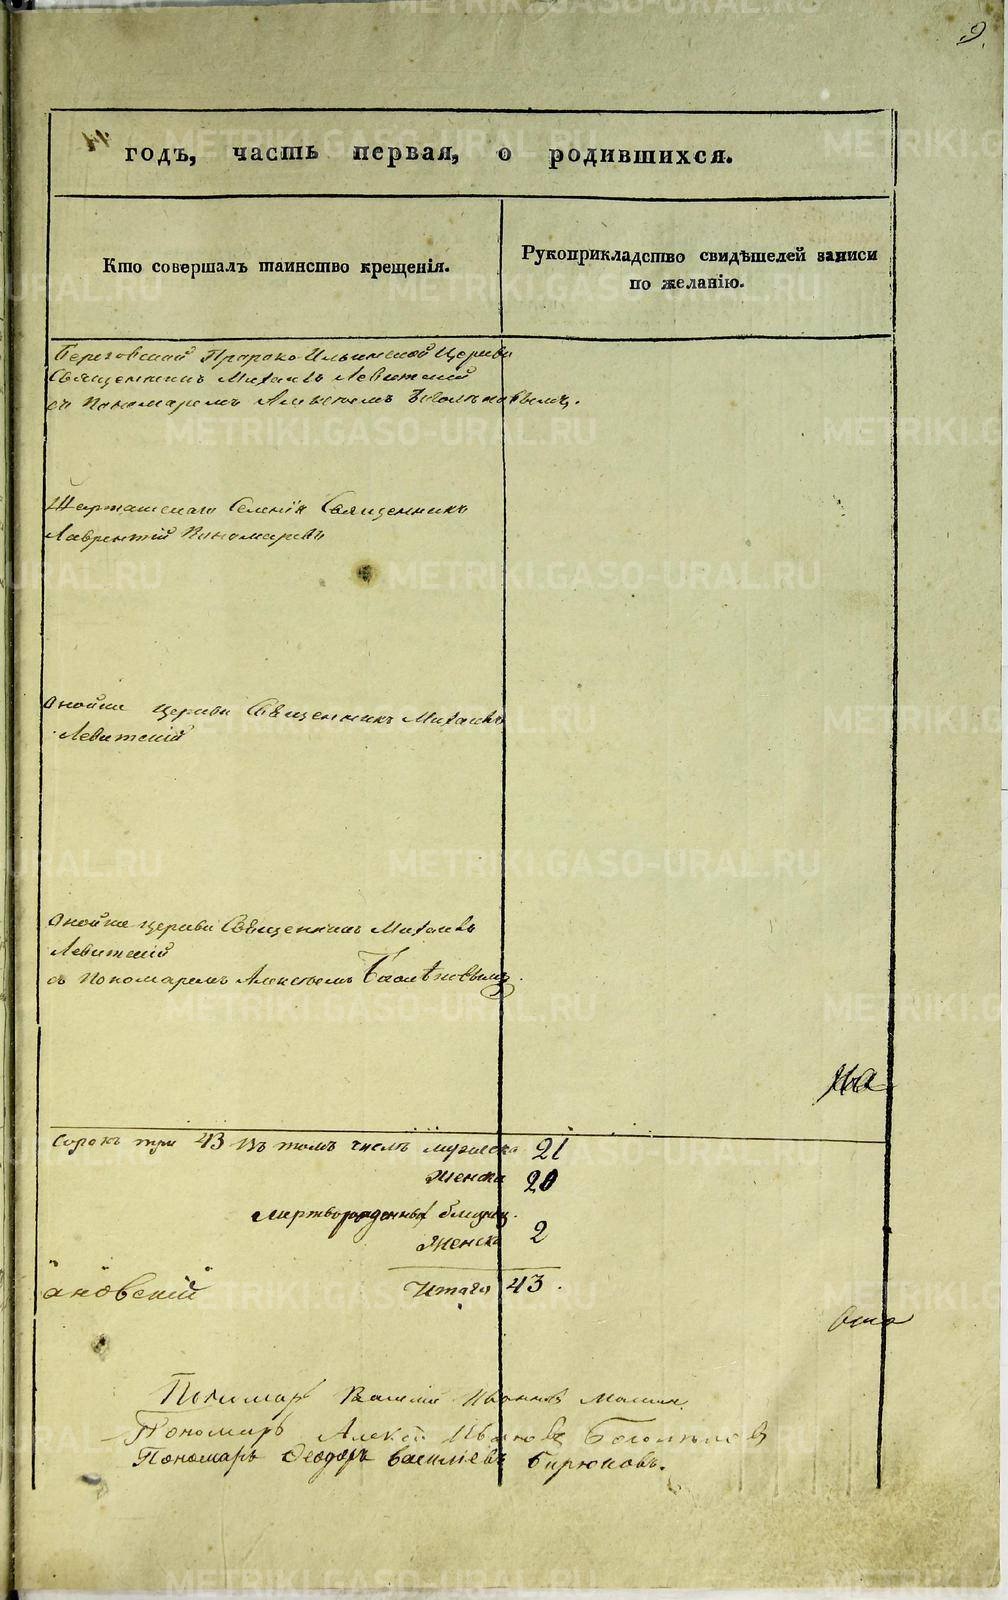 9.
годъ, часть первая, о родившихся.
Кто совершалъ таинство крещенія.
Рукоприкладство свидѣтелей записи
по желанію.
Береговской Пророко-Ильинской Церкви
Священникъ Михаилъ Левитский
съ Пономаремъ Алексѣемъ
Шарташскаго Селенія Священникъ
Лаврентій Пономаревъ
Оной же церкви Священникъ Михаилъ
Левитскій
Оной же церкви Священникъ Михаилъ
Левитскій
съ Пономаремъ Алексѣемъ
Сорокъ три 43 въ томъ числѣ мужеска 21
Женска 20
Мертворожденныхъ близнец.
Женска 2
Итого 43.
ановскій
Пономарь Василій Иванновъ
Пономарь Алексѣй Ивановъ
Пономарь Ѳеодоръ Василіевъ Бирюковъ.
METRIKI.GASO-URAL.RU